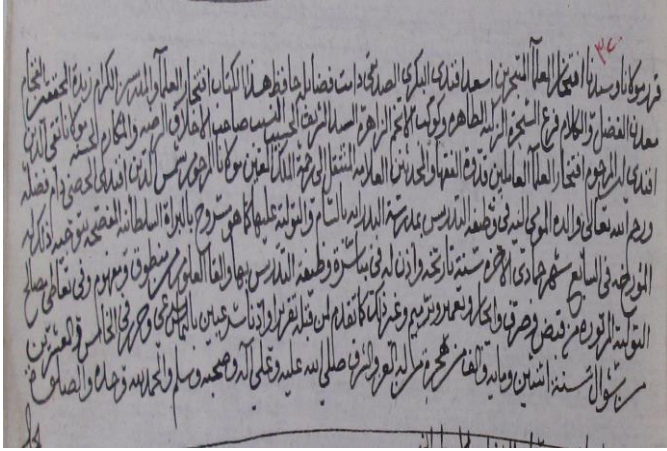 ٣٤٠
قرر مولانا وسيدنا افتخار العلما المتبحرين اسعد افندي البكري الصديقي دامت فضايله حافظ هذا الكتاب افتخار العلما والمدرسين الكرام زبدة المحققين الفخام
معدن الفضل والكلام فرع الشجرة الزكية الطاهره وكوكب الانجم الزاهرة السيد الشريف الحسيب النسيب صاحب الاخلاق الرضيه والمكارم الحسنه مولانا تقي الدين
افندي ابن المرحوم افتخار العلما العاملين قدوة الفقها والمحدثين العلامه المنتقل الى رحمة الملك المعين مولانا المرحوم شمس الدين افندي الحصني دام فضله
ورحم الله تعالى والده المومى اليه في وظيفة التدريس بمدرسة البدرايه بالشام والتولية عليها كما هو مشروح بالبراة السلطانيه المفصحه بتوجيه ذلك له
المورخه في السابع شهر جمادى الاخره سنة تاريخه واذن له في مباشرة وظيفة التدريس بها والقا العلوم من منطوق ومفهوم وفي تعاطي مصالح
التولية المزبوره من قبض وصرف وايجار وتعمير وترميم وغير ذلك كما تقدم لمن قبله تقريرا واذنا شرعيين بالتماس شرعي وحرر في الخامس والعشرين
من شوال سنة اثنتين وماية والف من هجرة من له العز والشرف صلى الله عليه وعلى آله وصحبه وسلم والحمد لله وحده والصلاة